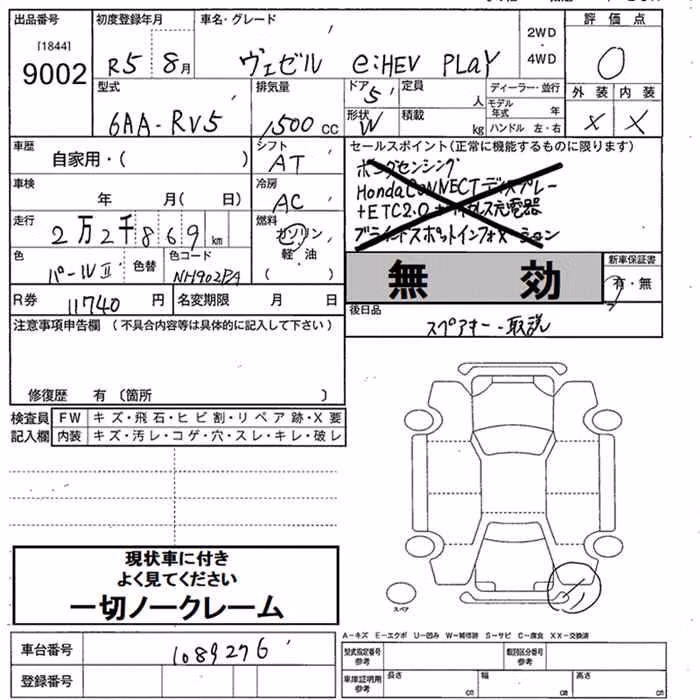 出品番号 初度登録年月 車名・グレード 評価点
[1844]
9002 R5 8月 ヴェゼル e:HEV PLaY 2WD・4WD 0
外装 内装
型式 排気量 ドア 定員 ディーラー・並行
6AA-RV5 1500cc 5 人 モデル年式 年 X X
形状 積載
W kg ハンドル 左・右
車歴 シフト セールスポイント(正常に機能するものに限ります)
自家用・( ) AT ホンダセンシング
車検 冷房 HondaCoNNECTディスプレー
年 月( 日) AC +ETC2.0+ワイヤレス充電器
走行 燃料 ブラインドスポットインフォメーション
2万2千869km ガソリン
軽油
( )
色 色替 色コード 新車保証書
パールⅡ NH902PA 無効 有・無
R券 名変期限 後日品
11740円 月 日 スペアキー・取説
注意事項申告欄 (不具合内容等は具体的に記入して下さい)
修復歴 有 (箇所 )
検査員 FW キズ・飛石・ヒビ割・リペア跡・X要
記入欄 内装 キズ・汚レ・コゲ・穴・スレ・キレ・破レ
現状車に付き
よく見てください
一切ノークレーム
スペア
A-キズ E-エクボ U-凹み W-補修跡 S-サビ C-腐食 XX-交換済
車台番号 1089276 型式指定番号 参考 類別区分番号 参考
登録番号 車庫証明用 参考 長さ cm 幅 cm 高さ cm